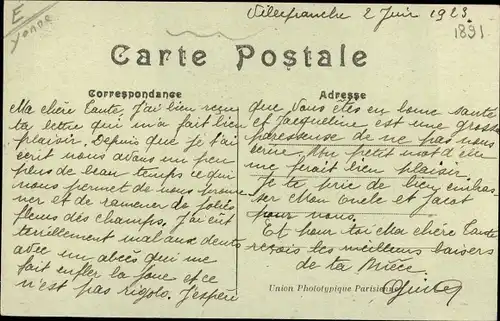 E
Yonne
Villefranche 2 Juin 1923
1891
Carte Postale
Correspondance
Ma chère Tante, J'ai bien reçu
ta lettre qui m'a fait bien
plaisir. Depuis que je t'ai
écrit nous avons un peu
plus de beau temps ce qui
nous permet de nous prome
ner et de ramener de jolies
fleurs des champs. J'ai eu
terriblement mal aux dents
avec un abcès qui me
fait enfler la joue et ce
n'est pas rigolo. J'espère
Adresse
que vous êtes en bonne santé
et Jacqueline est une grosse
paresseuse de ne pas nous
écrire. Mon petit mot d'elle
me ferait bien plaisir.
Je te prie de bien embras
ser Mon Oncle et Jacot
pour nous.
Et pour toi Ma chère Tante
reçois les meilleurs baisers
de ta Nièce
Union Phototypique Parisienne